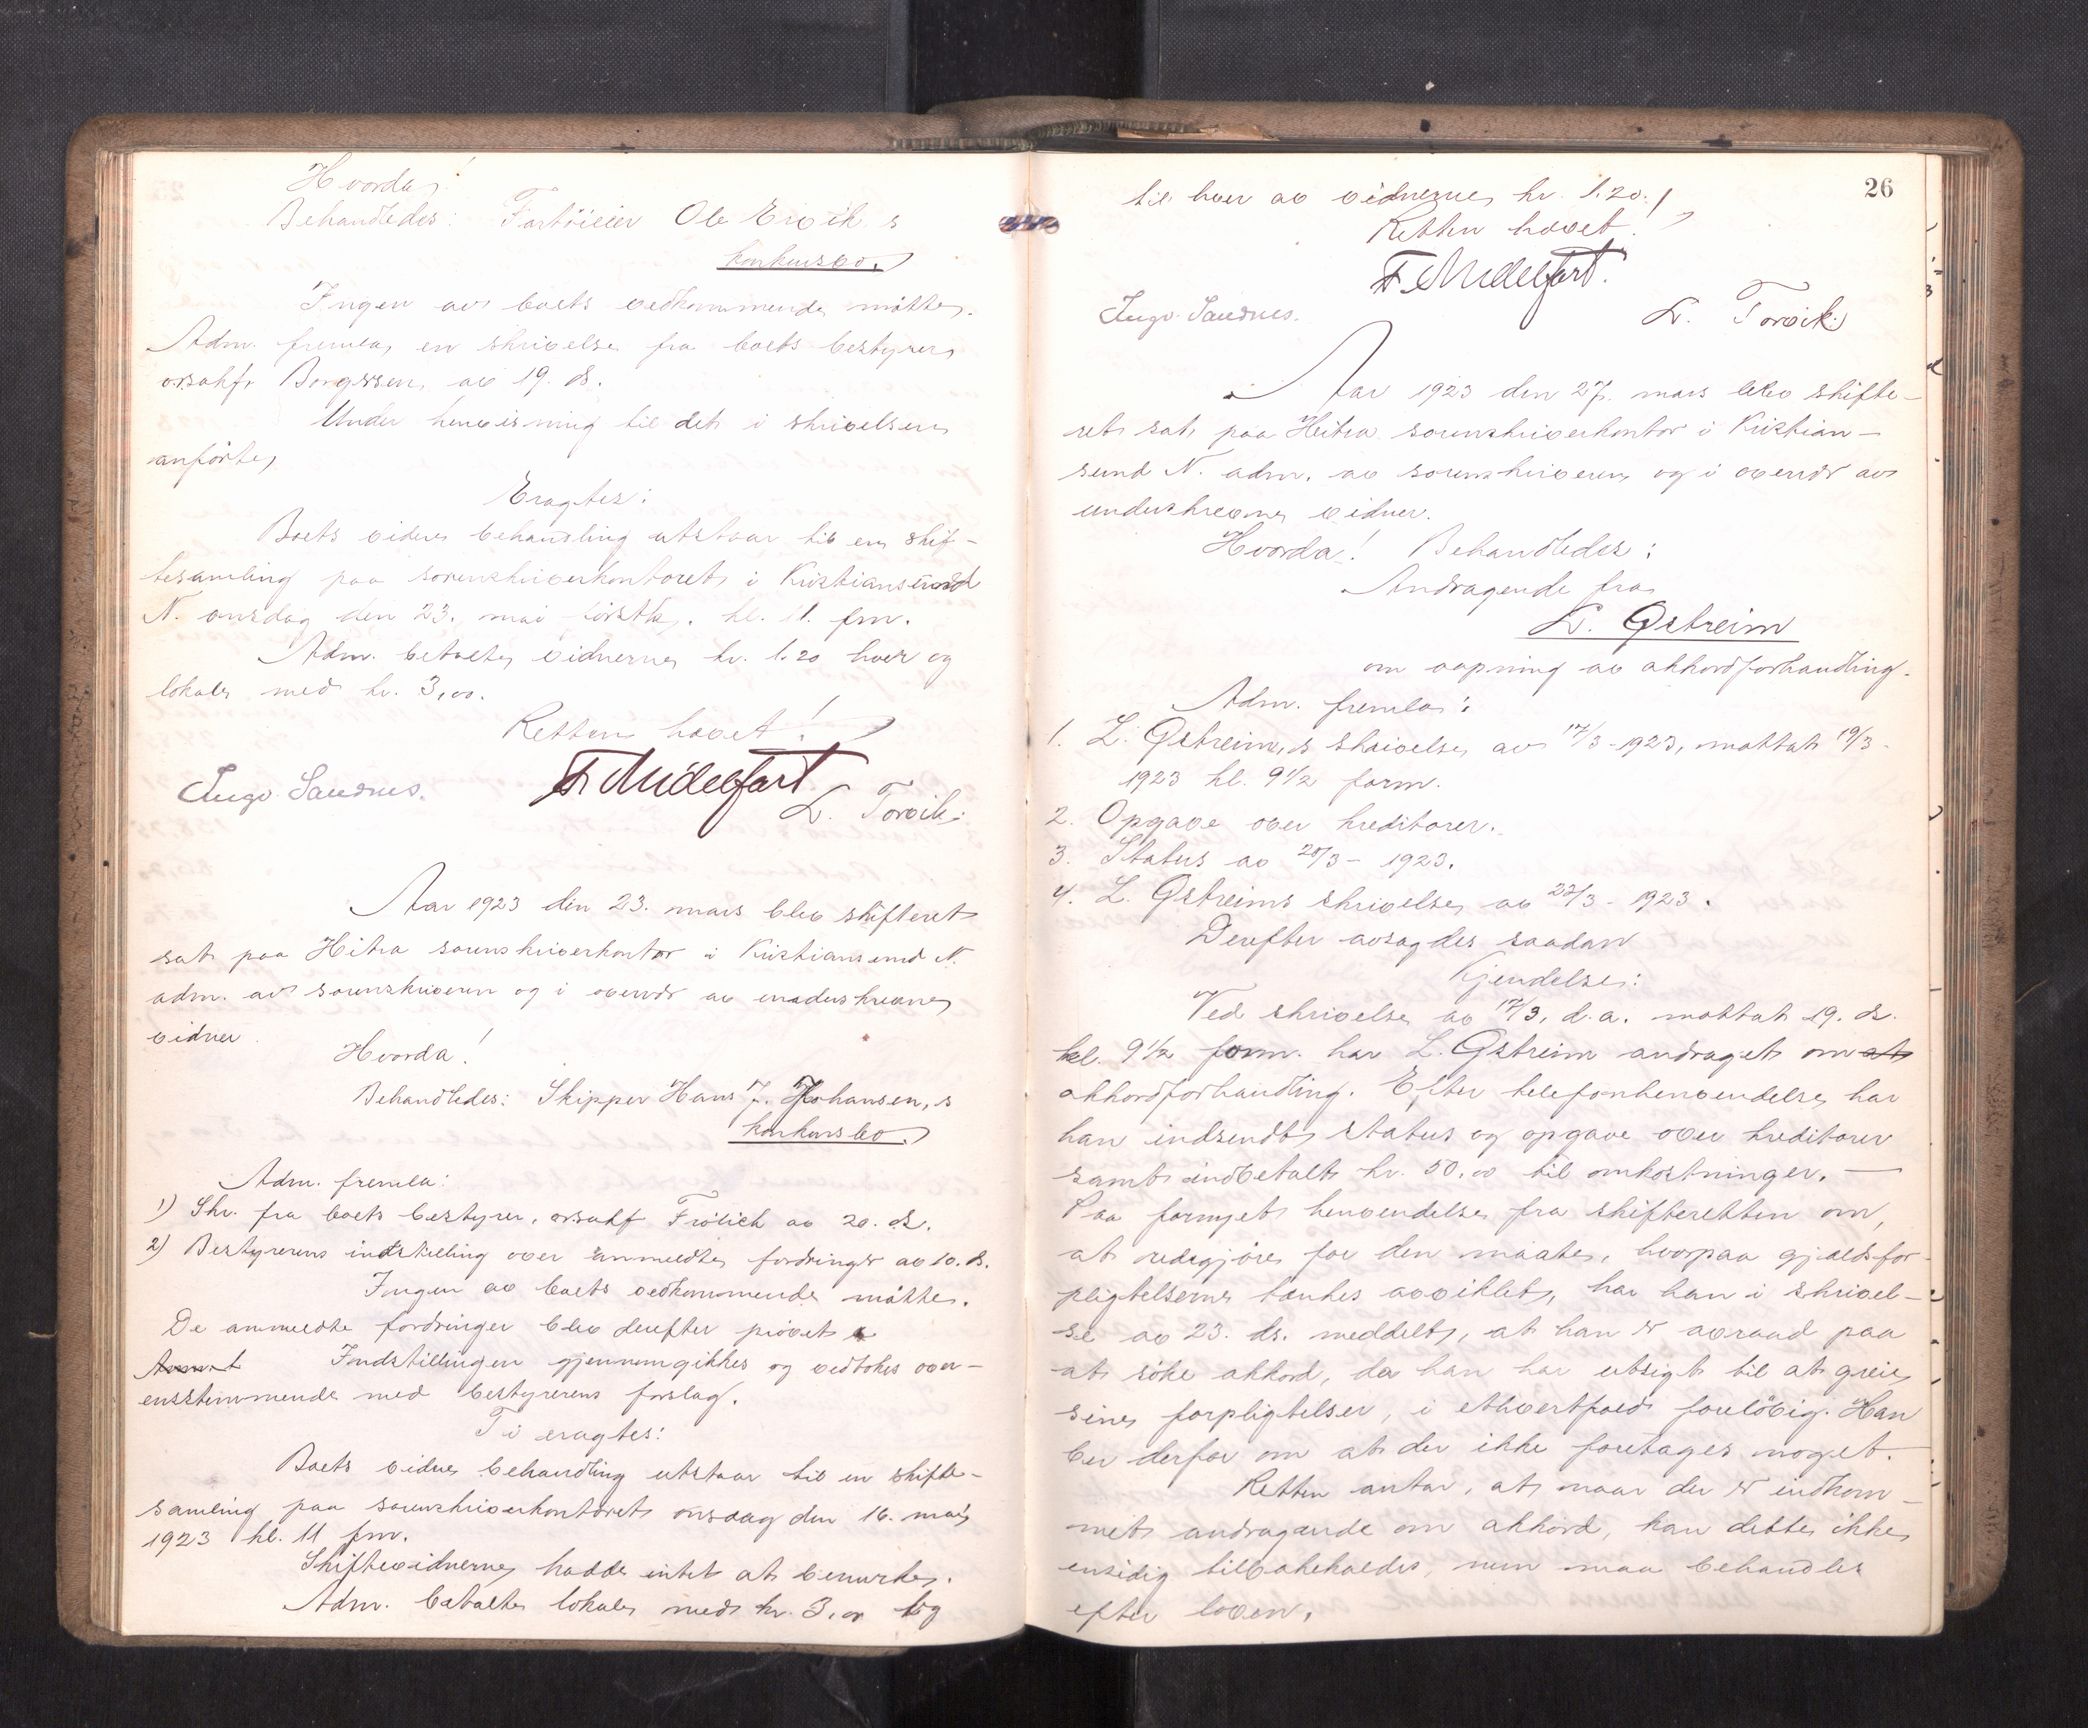 Hvorda!
Behandledes: Fartöieier Ole Ervik's
konkursbo.
Ingen av boets vedkommende møtte.
Adm. fremla en skrivelse fra boets bestyrer
orsakf. Borgersen av 19. ds.
Under henvisning til det i skrivelsen
anførte,
Eragtes:
Boets videre behandling utstaar til en skif-
tesamling paa sorenskriverkontoret i Kristiansund
N. onsdag den 23. mai førstk. kl. 11. fm.
Adm. betalte vidnerne kr. 1.20 hver og
lokale med kr. 3,00.
Retten hævet!
Ingv. Sandnes. F. Midelfart L. Torvik.
Aar 1923 den 23. mars blev skifteret
sat paa Hitra sorenskriverkontor i Kristiansund N.
adm. av sorenskriveren og i overvær av underskrevne
vidner.
Hvorda!
Behandledes: Skipper Hans J. Johansen's
konkursbo.
Adm. fremla:
1) Skr. fra boets bestyrer, orsakf Frölich av 20. ds.
2) Bestyrerens indstilling over anmeldte fordringer av 10. ds.
Ingen av boets vedkommende møtte.
De anmeldte fordringer blev derefter prövet
Indstillingen gjennemgikkes og vedtokes over-
ensstemmende med bestyrerens forslag.
Ti eragtes:
Boets videre behandling utstaar til en skifte-
samling paa sorenskriverkontoret onsdag den 16. mai
1923 kl. 11 fm.
Skiftevidnerne hadde intet at bemerke.
Adm. betalte lokale med kr. 3,00 og
26
til hver av vidnerne kr. 1.20./
Retten hævet!
F. Midelfart.
Ingv. Sandnes. L. Torvik.
Aar 1923 den 27. mars blev skifte-
ret sat paa Hitra sorenskriverkontor i Kristian-
sund N. adm. av sorenskriveren og i overvær av
underskrevne vidner.
Hvorda! Behandledes:
Andragende fra
L. Østreim
om aapning av akkordforhandling.
Adm. fremla:
1. L. Østreim's skrivelse av 17/3-1923, mottat 19/3-
1923 kl. 9 1/2 form.
2. Opgave over kreditorer.
3. Status av 20/3-1923.
4. L. Østreims skrivelse av 23/3-1923.
Derefter avsagdes saadan
Kjendelse:
Ved skrivelse av 17/3. d.a. mottat 19. ds.
kl. 9 1/2 form. har L. Østreim andraget om at
akkordforhandling. Efter telefonhenvendelse har
han indsendt status og opgave over kreditorer
samt indbetalt kr. 50.00 til omkostninger. —
Paa fornyet henvendelse fra skifteretten om,
at redegjöre for den maate, hvorpaa gjeldsfor-
pligtelserne tænkes avviklet, har han i skrivel-
se av 23. ds. meddelt, at han er avraad paa
at söke akkord, da han har utsigt til at greie
sine forpligtelser, i ethvertfald foreløbig. Han
ber derfor om at der ikke foretages noget.
Retten antar, at naar der er indkom-
met andragende om akkord, kan dette ikke
ensidig tilbakekaldes, men maa behandles
efter loven.